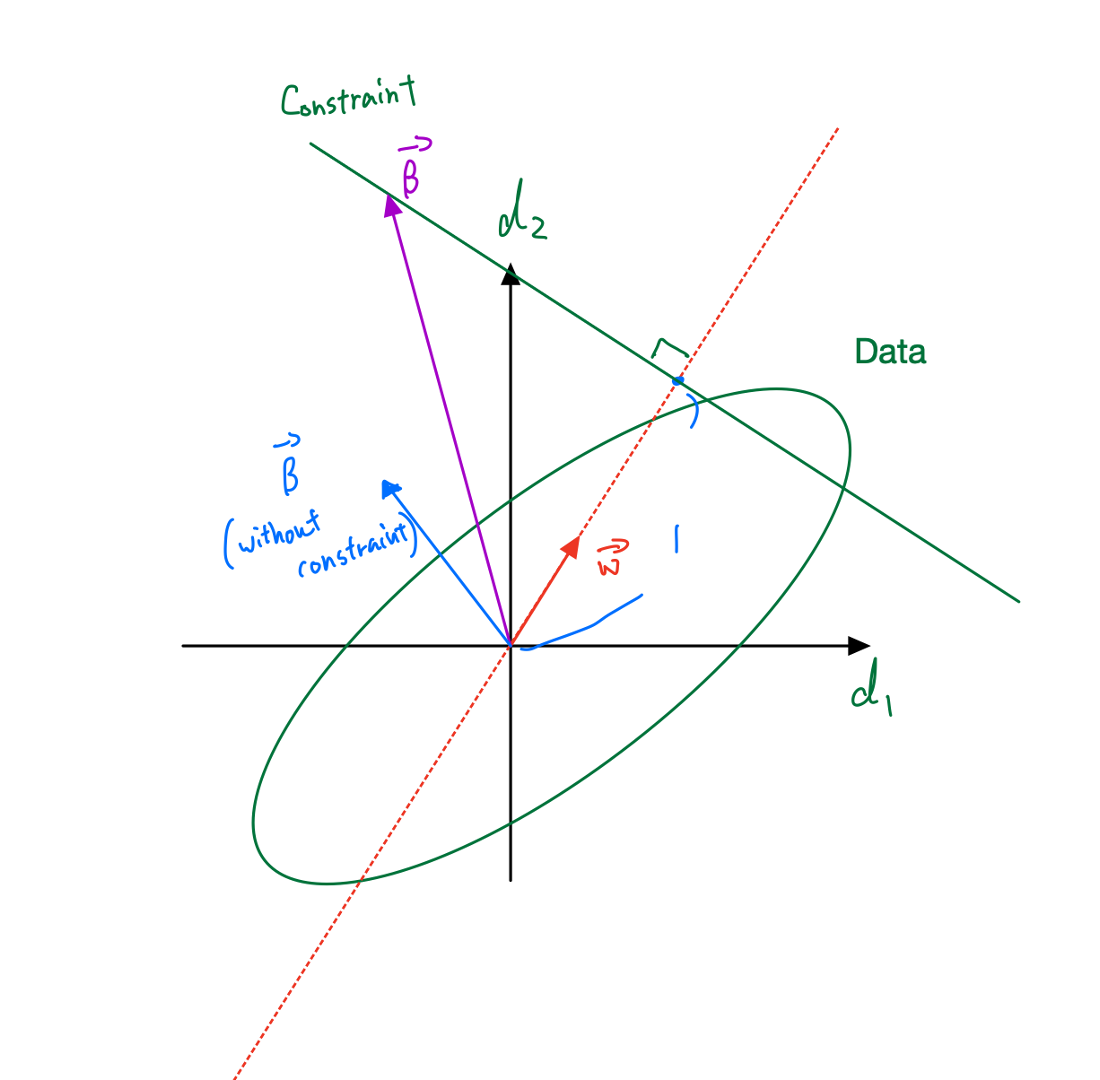 Constraint
β⃗
d₂
Data
β⃗
(without
constraint)
w⃗
1
d₁